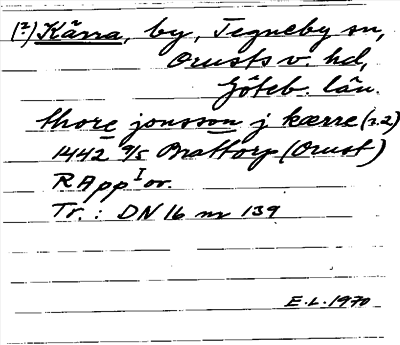 (?) Kärra, by, Tegneby sn,
Orusts v. hd,
Göteb. län.
thore jonsson j kærre (s.2)
1442 9/5 Brattorp (Orust)
RApp I or.
Tr.: DN 16 nr 139
E.L. 1970